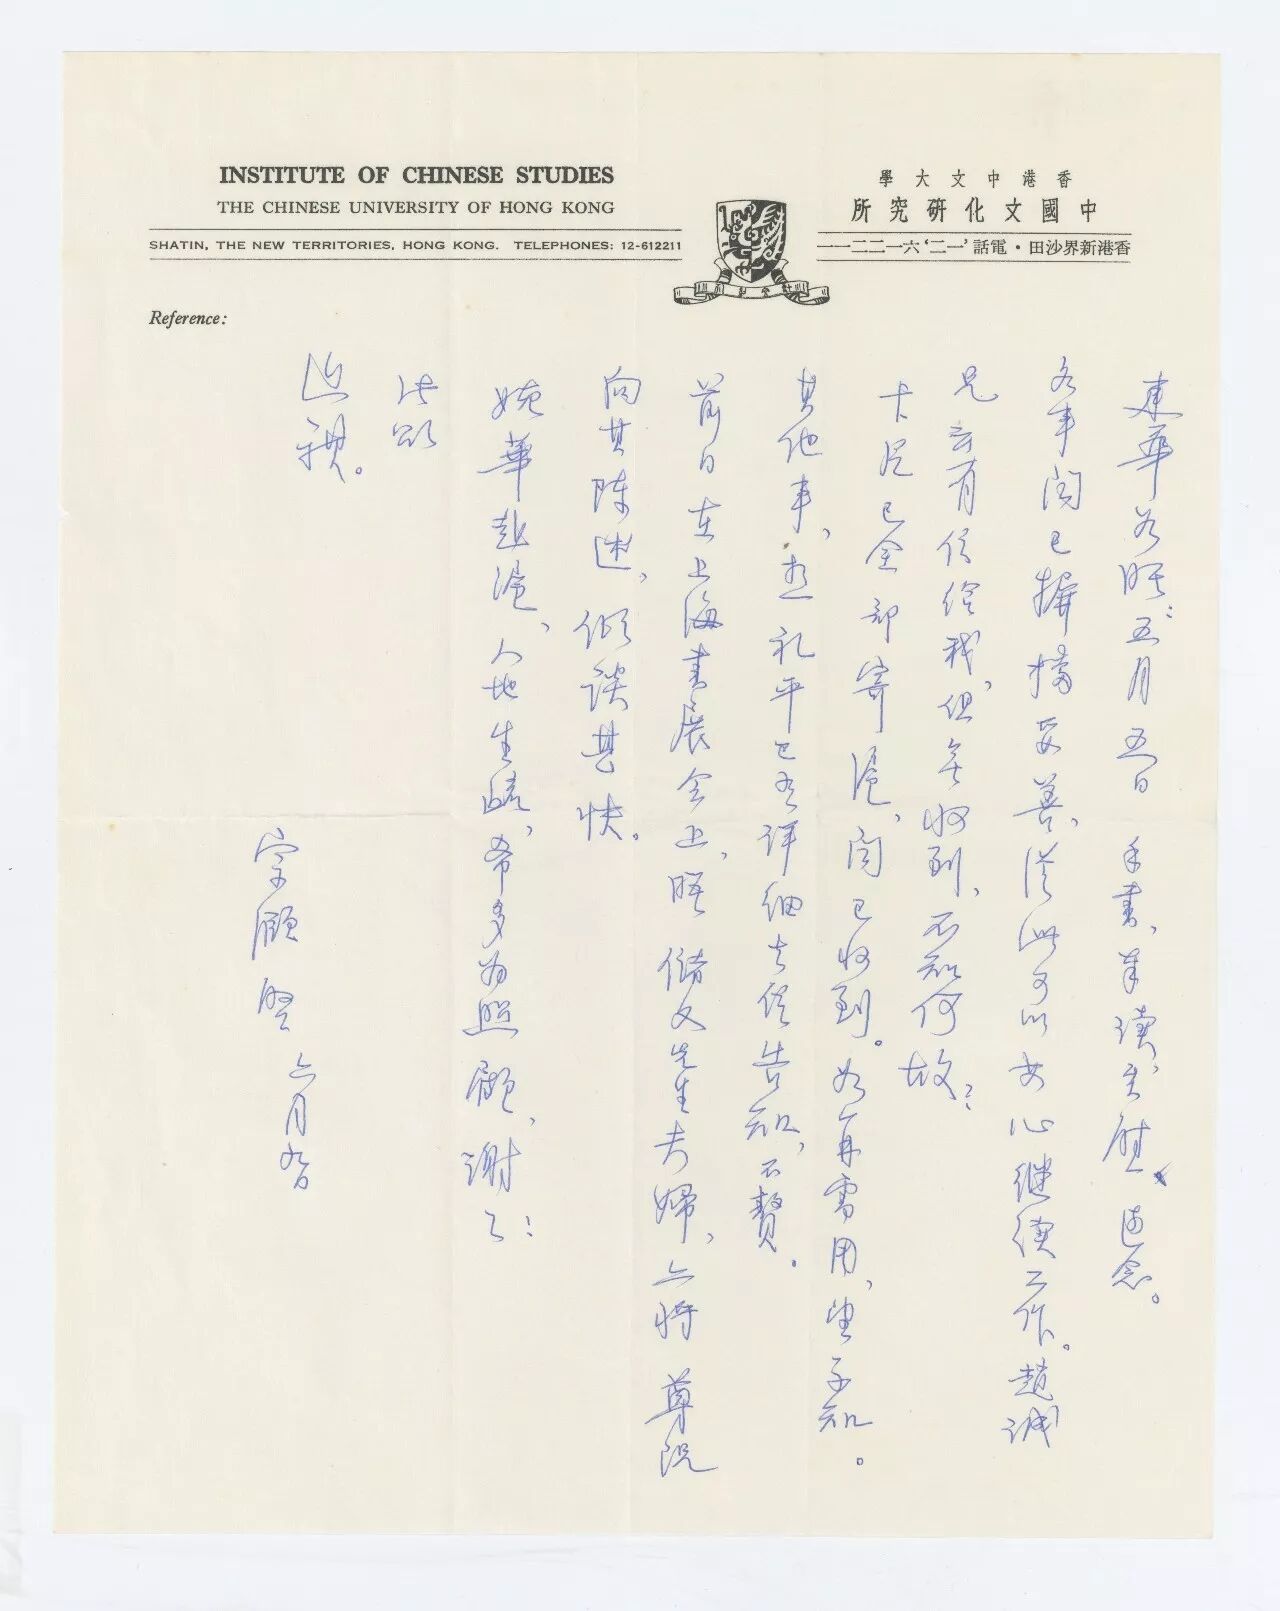 INSTITUTE OF CHINESE STUDIES
THE CHINESE UNIVERSITY OF HONG KONG
SHATIN, THE NEW TERRITORIES, HONG KONG. TELEPHONES: 12-612211
香港中文大學
中國文化研究所
香港新界沙田・電話‘一二’六一二二一一
Reference:
東華如晤：五月五日 手書，奉讀，至慰遠念。
各事聞已摒擋妥善，從此可以安心继續工作。趙誠
兄云有信给我，但無收到，不知何故？
卡片已全部寄滬，聞已收到。如再需用，望予知。
其他事，想礼平已有详细去信告知，不贅。
前日在上海書展会上，晤 儲文先生夫婦，亦将 尊況
向其陈述，倾談甚快。
婉華赴滬，人地生疏，希多为照顧，謝々！
此頌
近祺。
宗頤 啓 六月九日